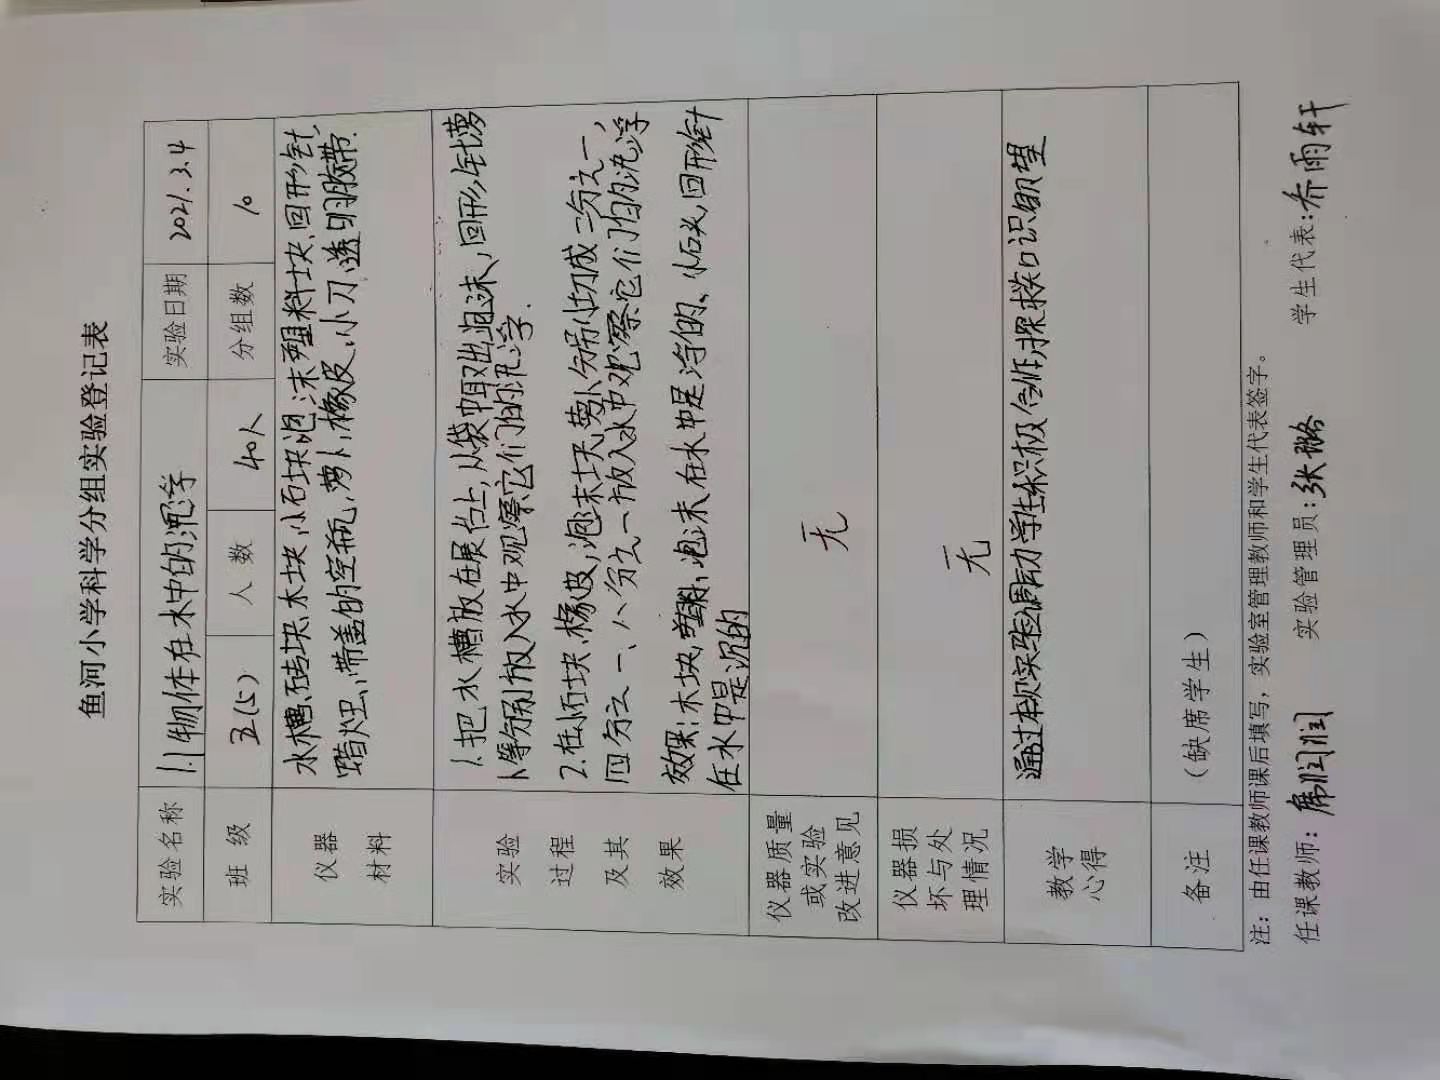 鱼河小学科学分组实验登记表
实验名称 1.1物体在水中的沉浮 实验日期 2021.3.4
班 级 五(5) 人 数 40人 分组数 10
仪器
材料
水槽,砖块,木块,小石块泡沫塑料块,回形针,
蜡烛,带盖的空瓶,萝卜,橡皮,小刀,透明胶带.
实验
过程
及其
效果
1.把水槽放在展台上,从袋中取出泡沫,回形针萝
卜等分别放入水中观察它们的沉浮.
2.在小石块,橡皮,泡沫块,萝卜分别切成二分之一、
四分之一、八分之一放入水中观察它们的沉浮
效果:木块,塑料,泡沫在水中是浮的、小石头,回形针
在水中是沉的
仪器质量
或实验
改进意见
无
仪器损
坏与处
理情况
无
教学
心得
通过本次实验调动学生积极合作,探求知识欲望
备注
(缺席学生)
注:由任课教师课后填写,实验室管理教师和学生代表签字。
任课教师:席润润 实验管理员:张璐 学生代表:乔雨轩